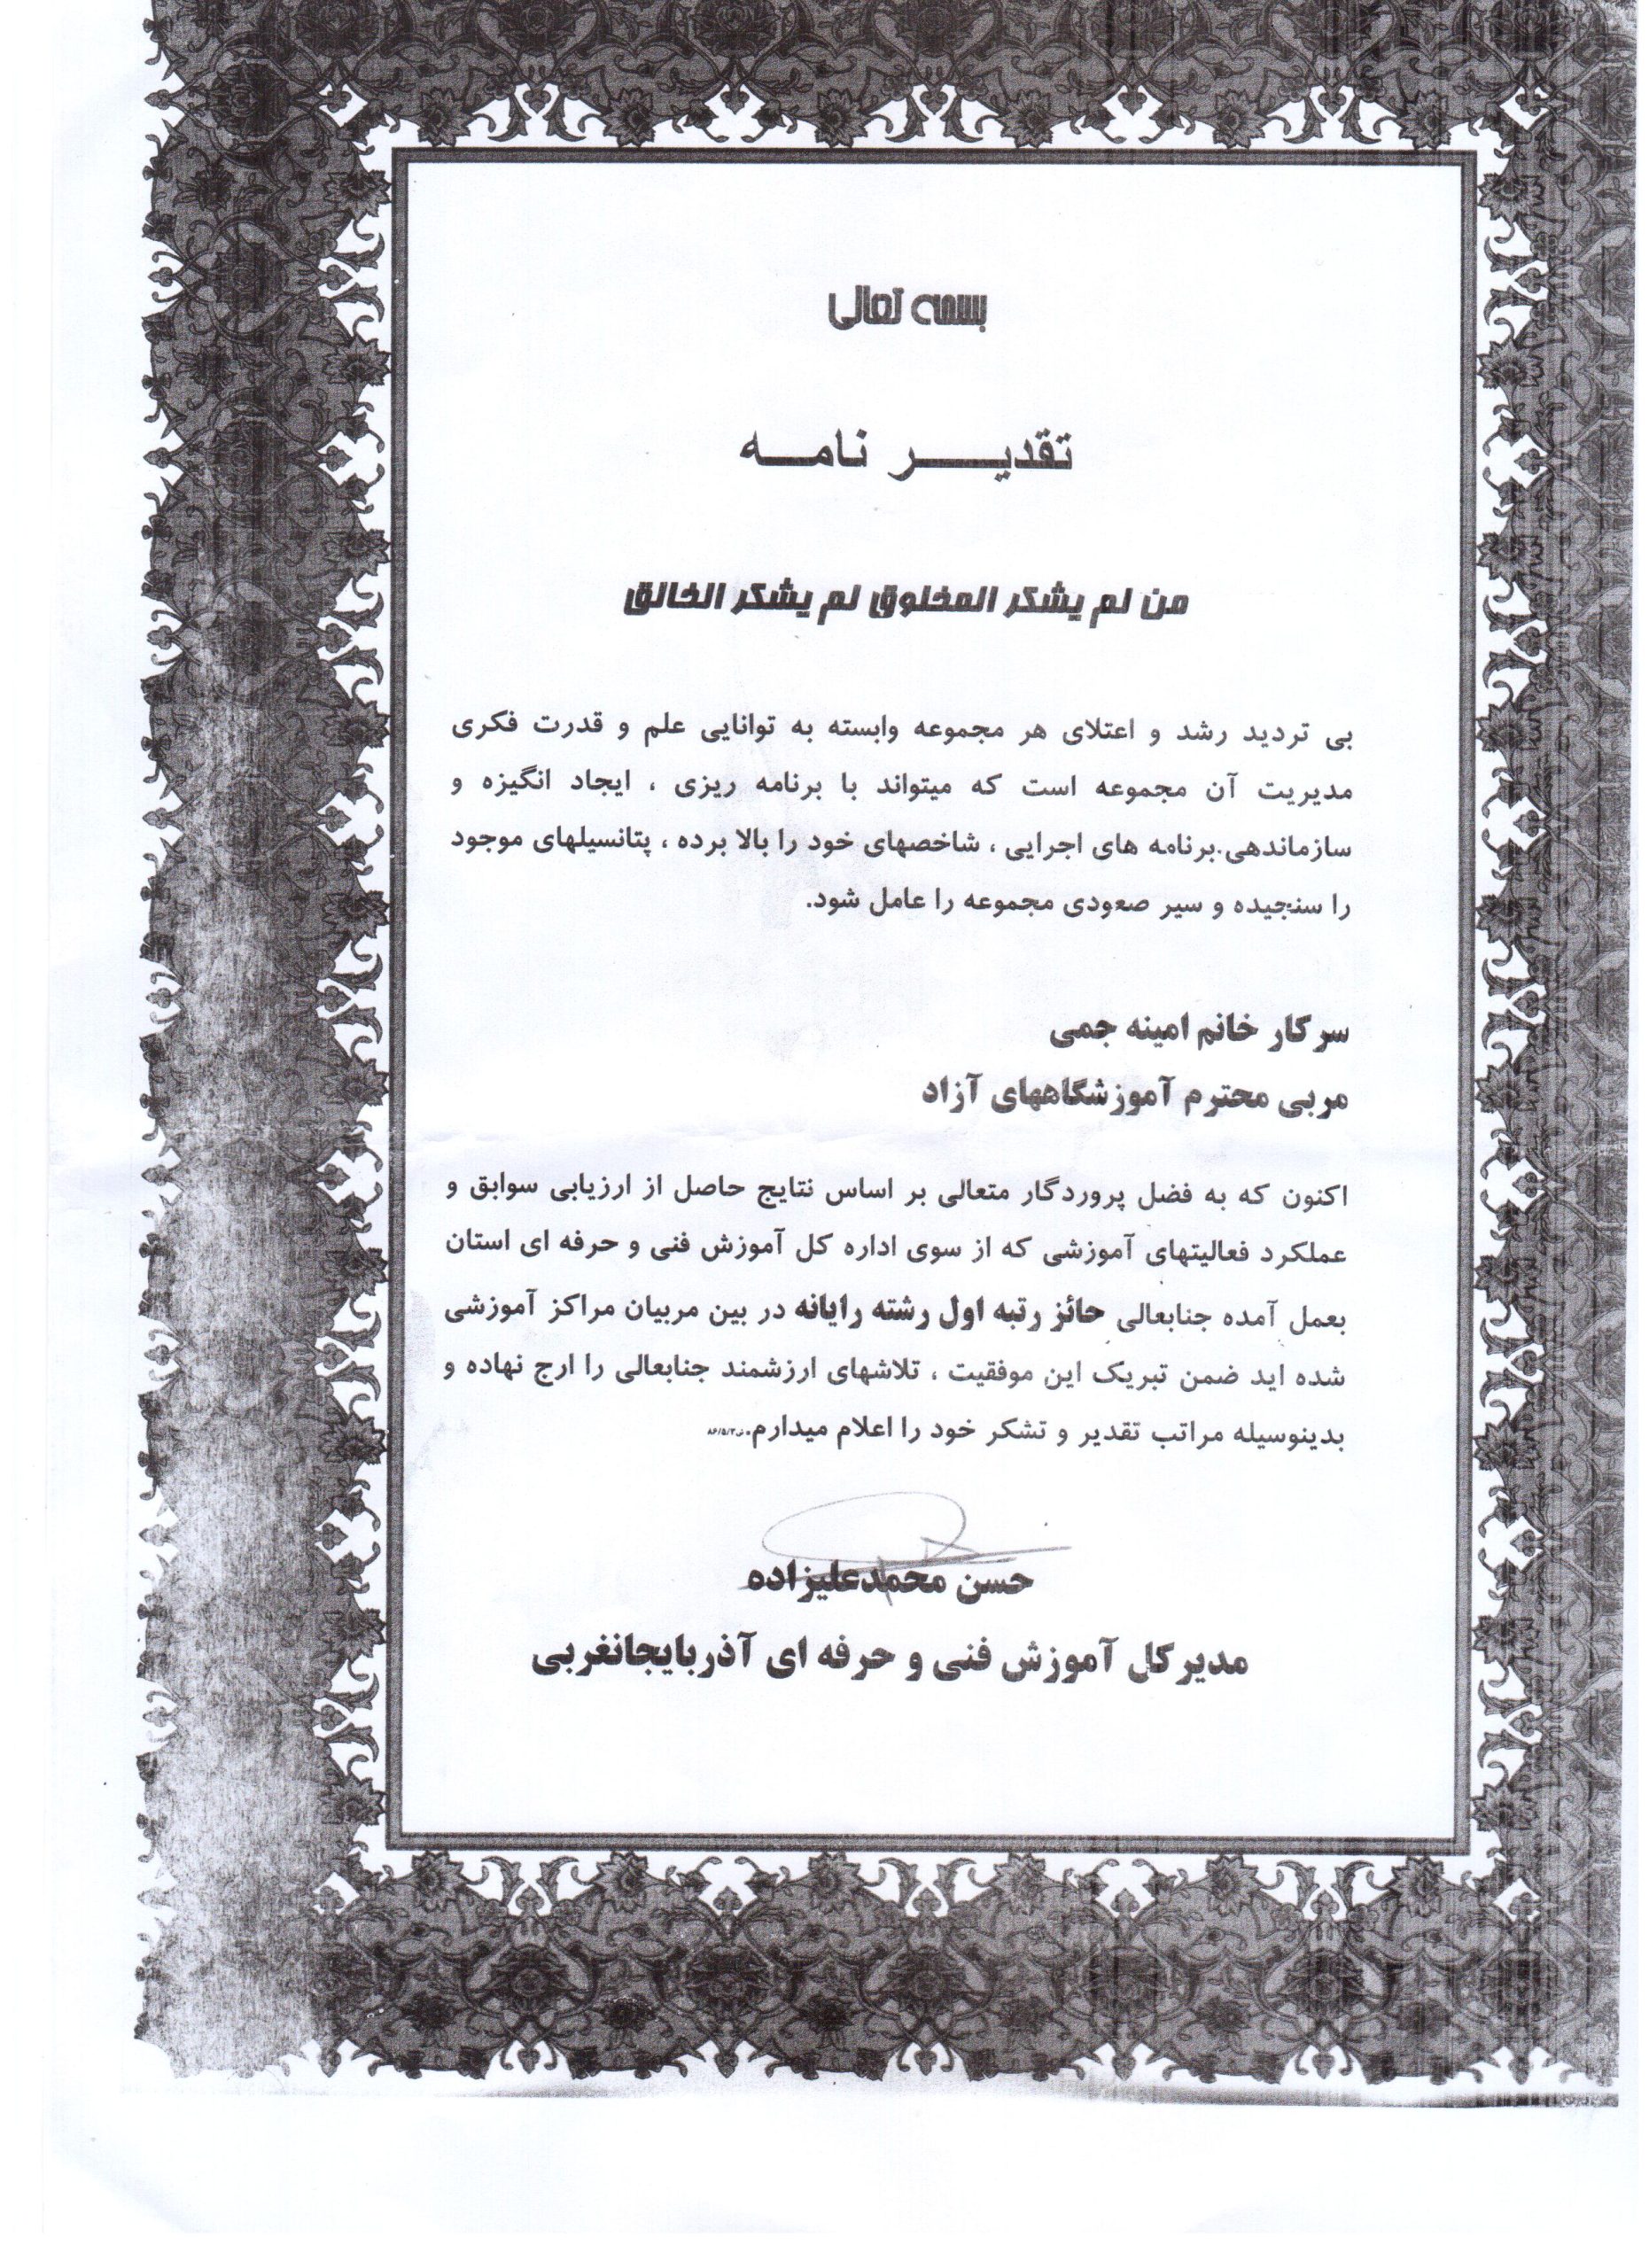 بسمه تعالی
تقدیر نامه
من لم یشکر المخلوق لم یشکر الخالق
بی تردید رشد و اعتلای هر مجموعه وابسته به توانایی علم و قدرت فکری
مدیریت آن مجموعه است که میتواند با برنامه ریزی ، ایجاد انگیزه و
سازماندهی.برنامه های اجرایی ، شاخصهای خود را بالا برده ، پتانسیلهای موجود
را سنجیده و سیر صعودی مجموعه را عامل شود.
سرکار خانم امینه جمی
مربی محترم آموزشگاههای آزاد
اکنون که به فضل پروردگار متعالی بر اساس نتایج حاصل از ارزیابی سوابق و
عملکرد فعالیتهای آموزشی که از سوی اداره کل آموزش فنی و حرفه ای استان
بعمل آمده جنابعالی حائز رتبه اول رشته رایانه در بین مربیان مراکز آموزشی
شده اید ضمن تبریک این موفقیت ، تلاشهای ارزشمند جنابعالی را ارج نهاده و
بدینوسیله مراتب تقدیر و تشکر خود را اعلام میدارم.
حسن محمدعلیزاده
مدیرکل آموزش فنی و حرفه ای آذربایجانغربی